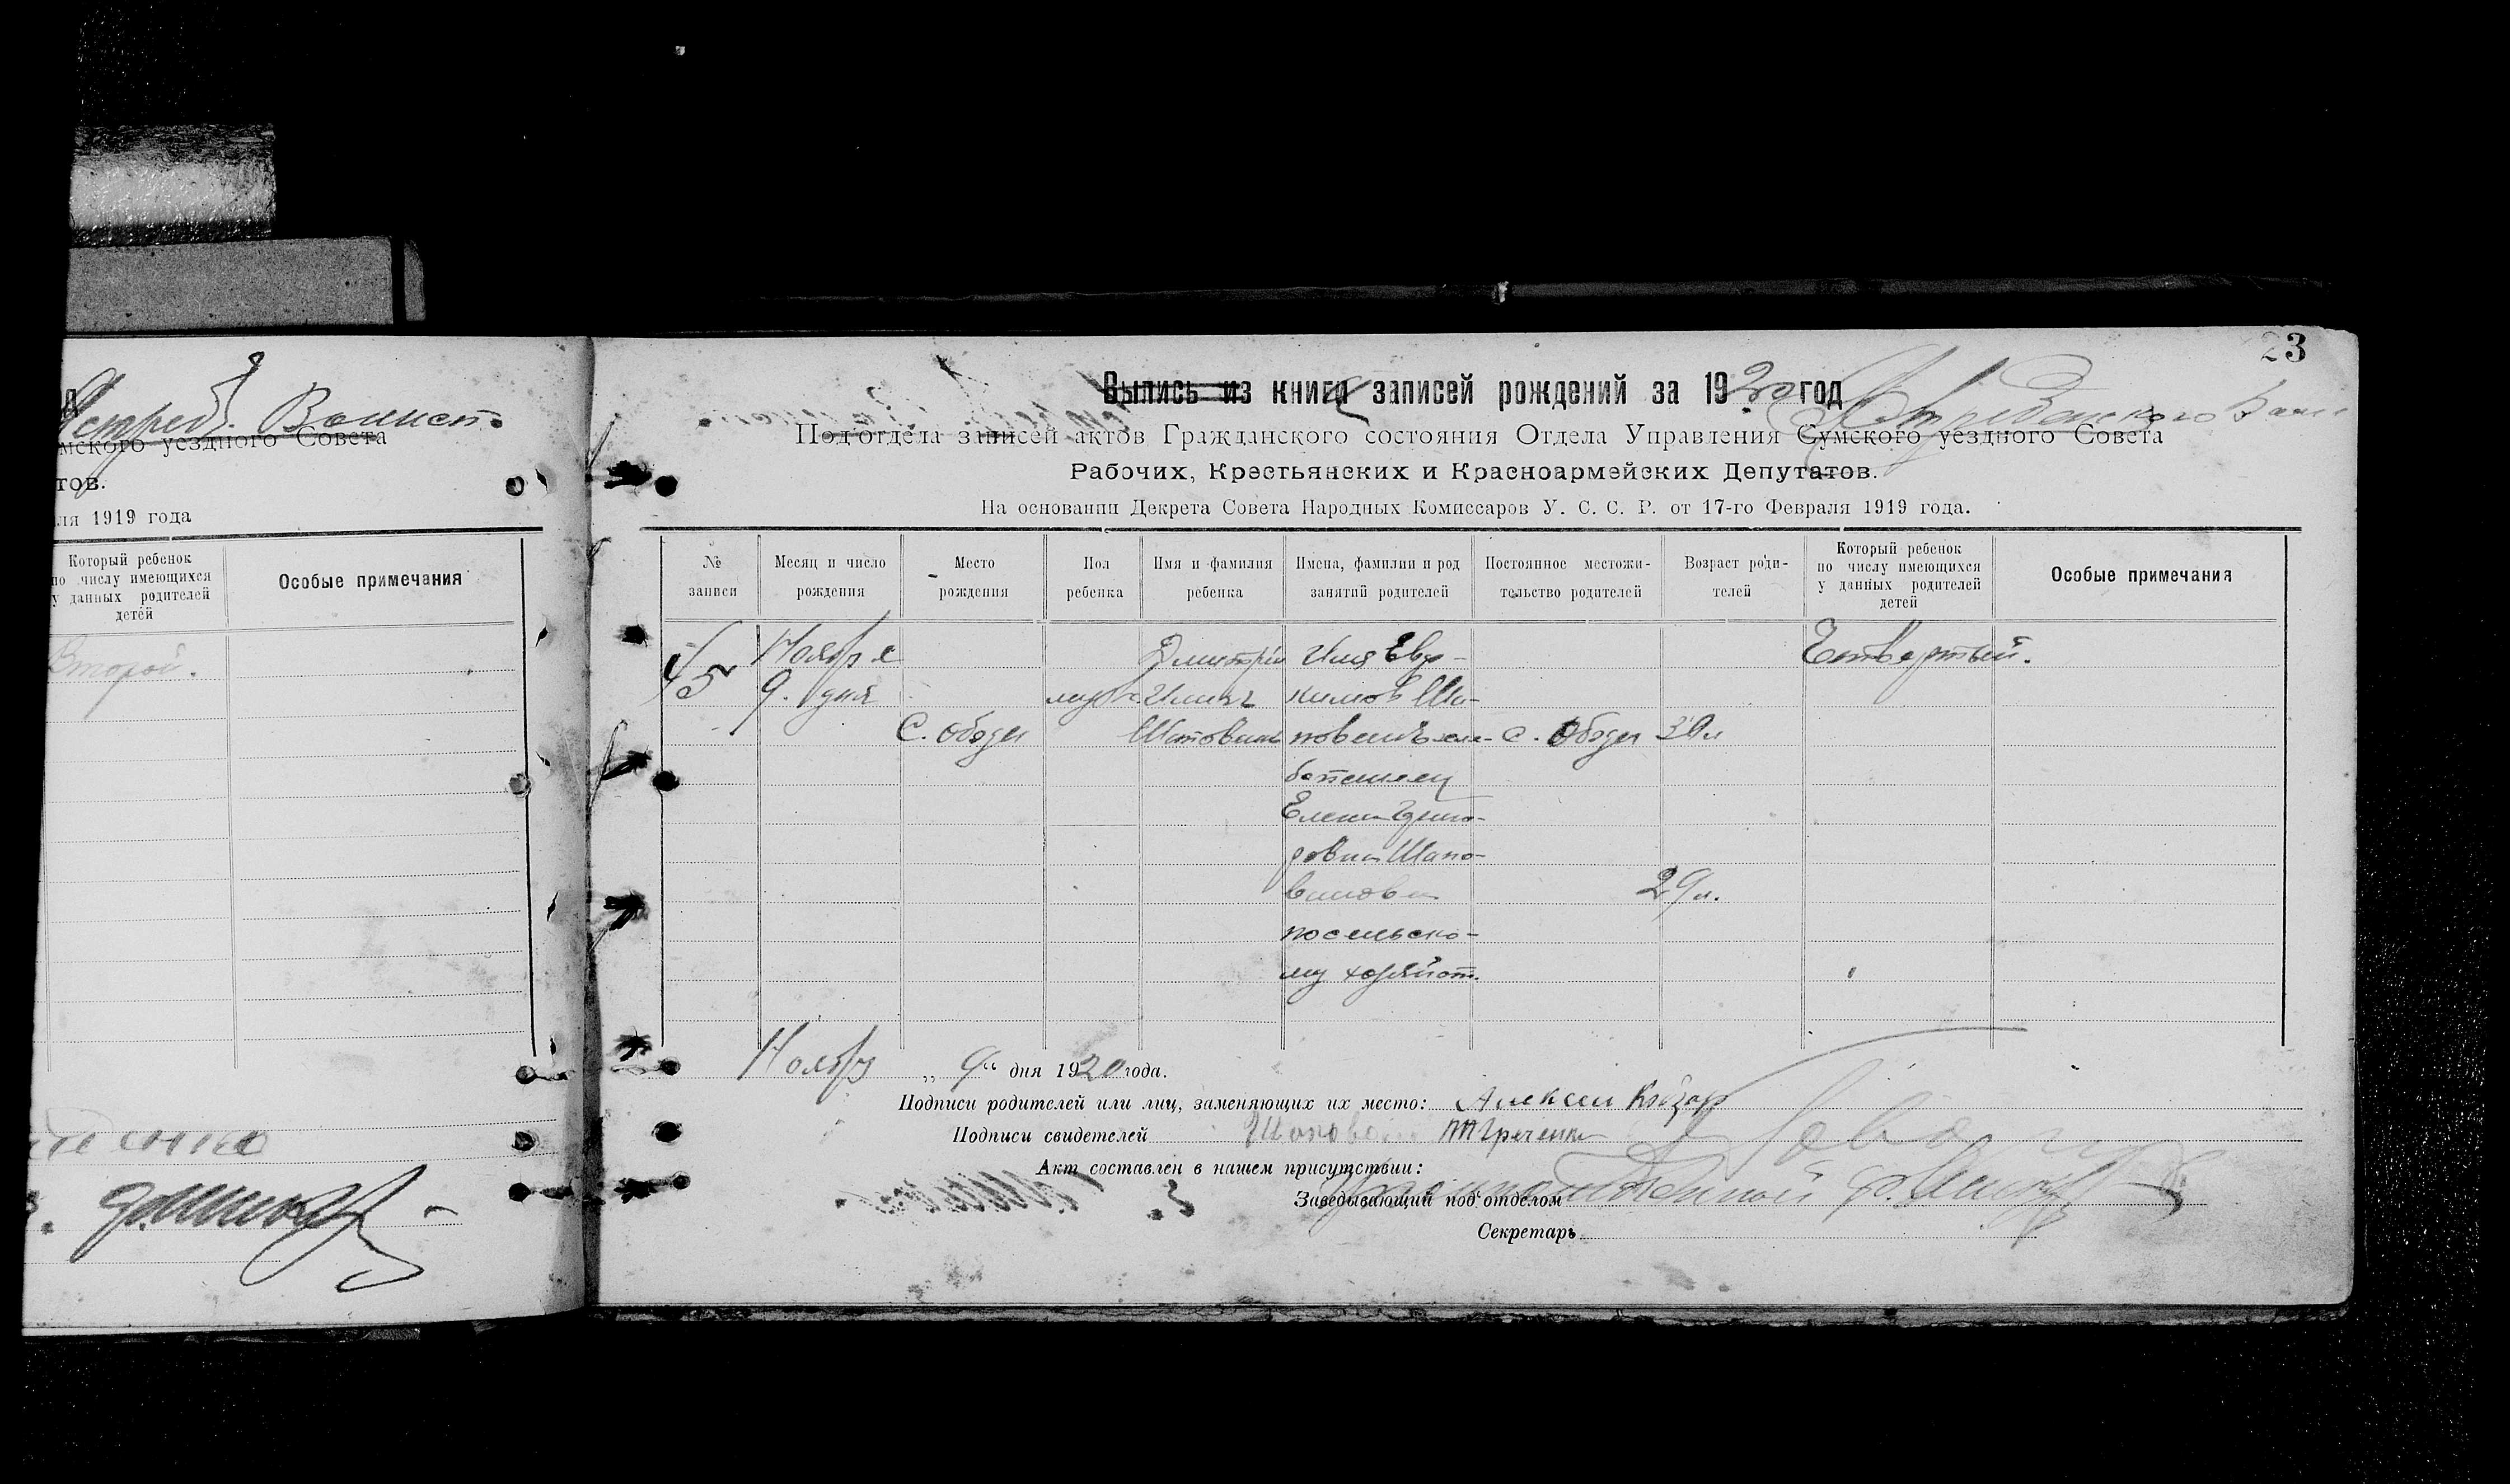 Ястреб. Волист.
мского уездного Совета
тов.
ля 1919 года
Который ребенок
по числу имеющихся
у данных родителей
детей
Особые примечания
Второй.
23
Выпись из книга записей рождений за 1920 год
Подотдела записей актов Гражданского состояния Отдела Управления Сумского уездного Совета
Рабочих, Крестьянских и Красноармейских Депутатов.
На основании Декрета Совета Народных Комиссаров У. С. С. Р. от 17-го Февраля 1919 года.
№ записи
Месяц и число рождения
Место рождения
Пол ребенка
Имя и фамилия ребенка
Имена, фамилии и род занятий родителей
Постоянное местожительство родителей
Возраст родителей
Который ребенок по числу имеющихся у данных родителей детей
Особые примечания
45
Ноября
9. дня
С. Ободы
муж.
Дмитрий
Ильич
Илья Евд-
кимов Ша-
повал
Елена
ровна Шапо-
валова
по сельско-
му хозяйст.
с. Ободы
30 л
29 л.
Четвертый.
Ноября „ 9 “ дня 1920 года.
Подписи родителей или лиц, заменяющих их место: Алексей Кобзар
Подписи свидетелей Шаповал
Акт составлен в нашем присутствии:
Заведывающий под‘отделом
Секретарь